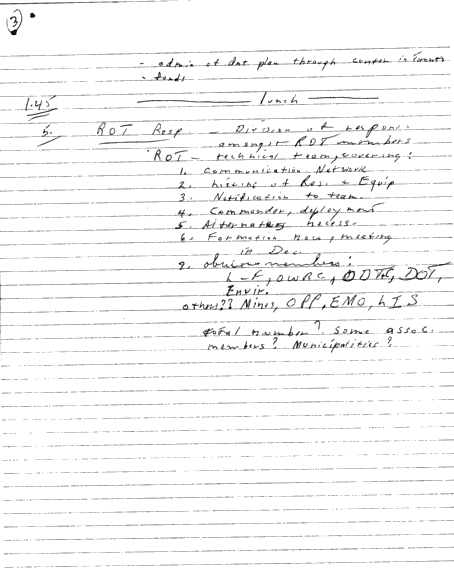 3
- admin of dnt plan through center in Toronto
- funds
1.45 lunch
5. ROT Resp - Division of respons.
amongst ROT members
ROT - technical team, covering:
1. Communication Network
2. listing of Res. + Equip
3. Notification to team
4. Commander, deployment
5. Alternates necess.
6. Formation now, meeting
in Dec.
7. obvious members:
L-F, OWRC, ODTC, DOT,
Envir.
others?? Mines, OPP, EMO, LIS
total number? some assoc.
members? Municipalities?